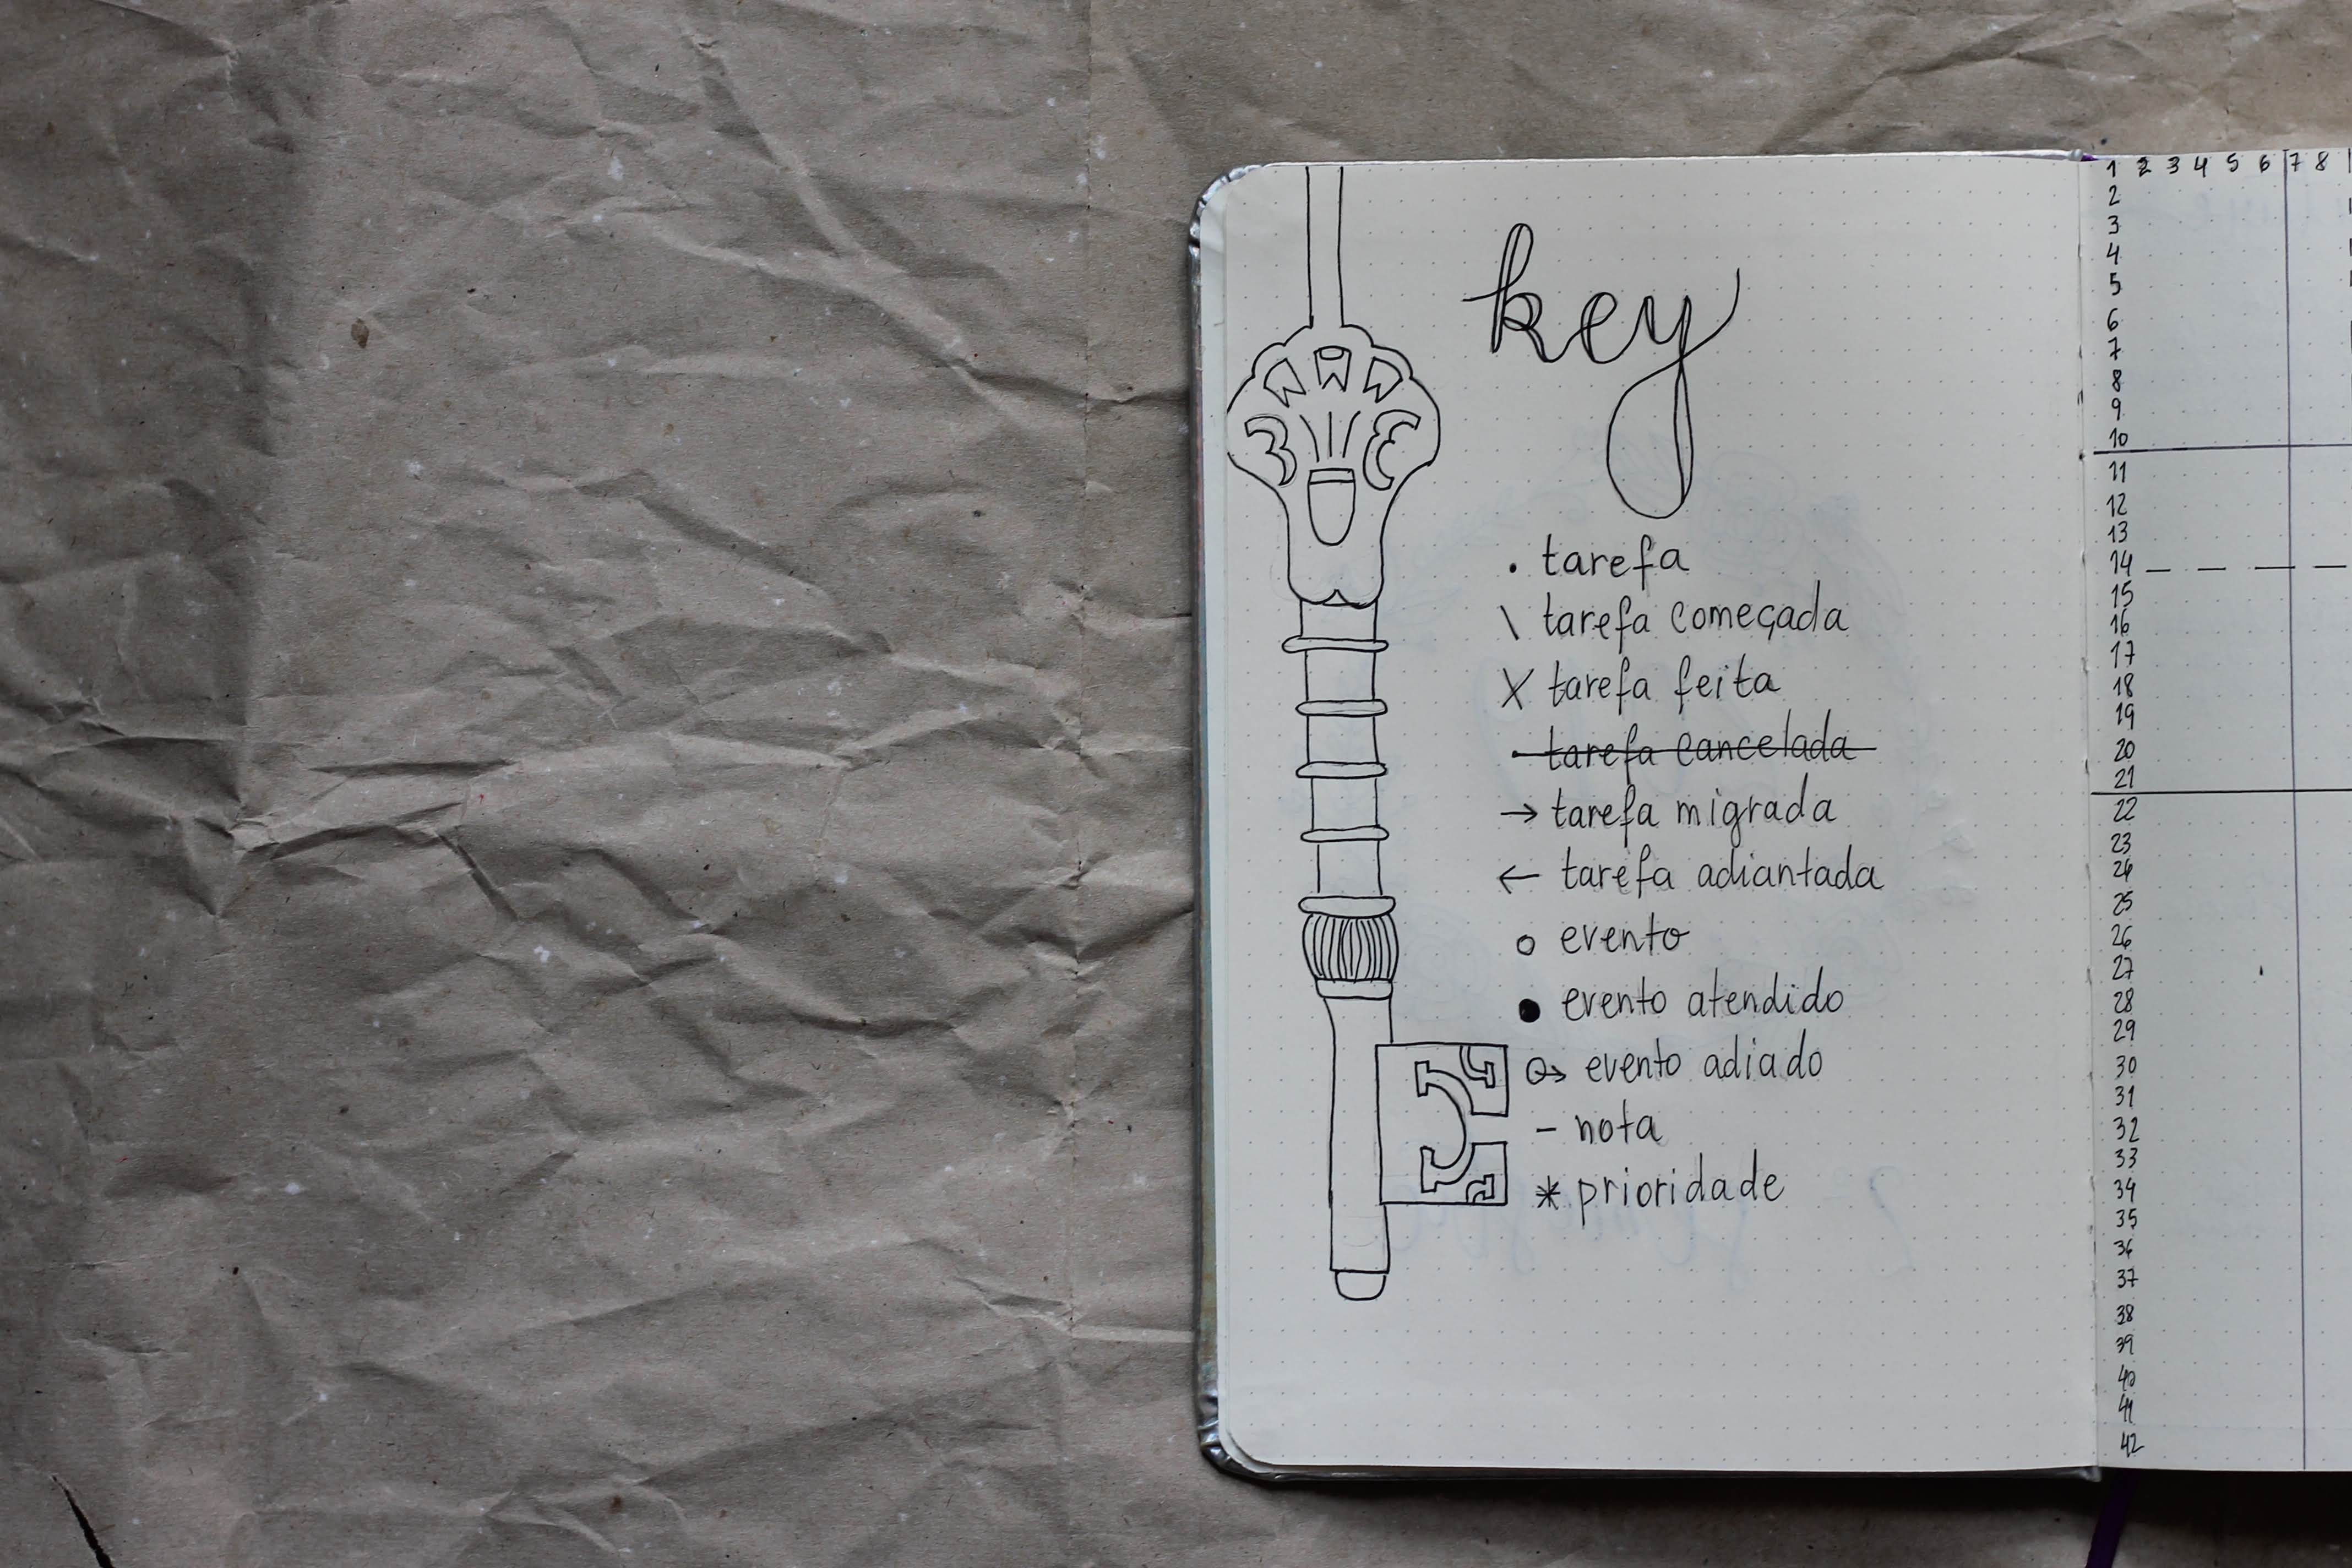 key
• tarefa
\ tarefa começada
X tarefa feita
• tarefa cancelada
→ tarefa migrada
← tarefa adiantada
○ evento
● evento atendido
○→ evento adiado
– nota
* prioridade
1 2 3 4 5 6 7 8
2
3
4
5
6
7
8
9
10
11
12
13
14
15
16
17
18
19
20
21
22
23
24
25
26
27
28
29
30
31
32
33
34
35
36
37
38
39
40
41
42